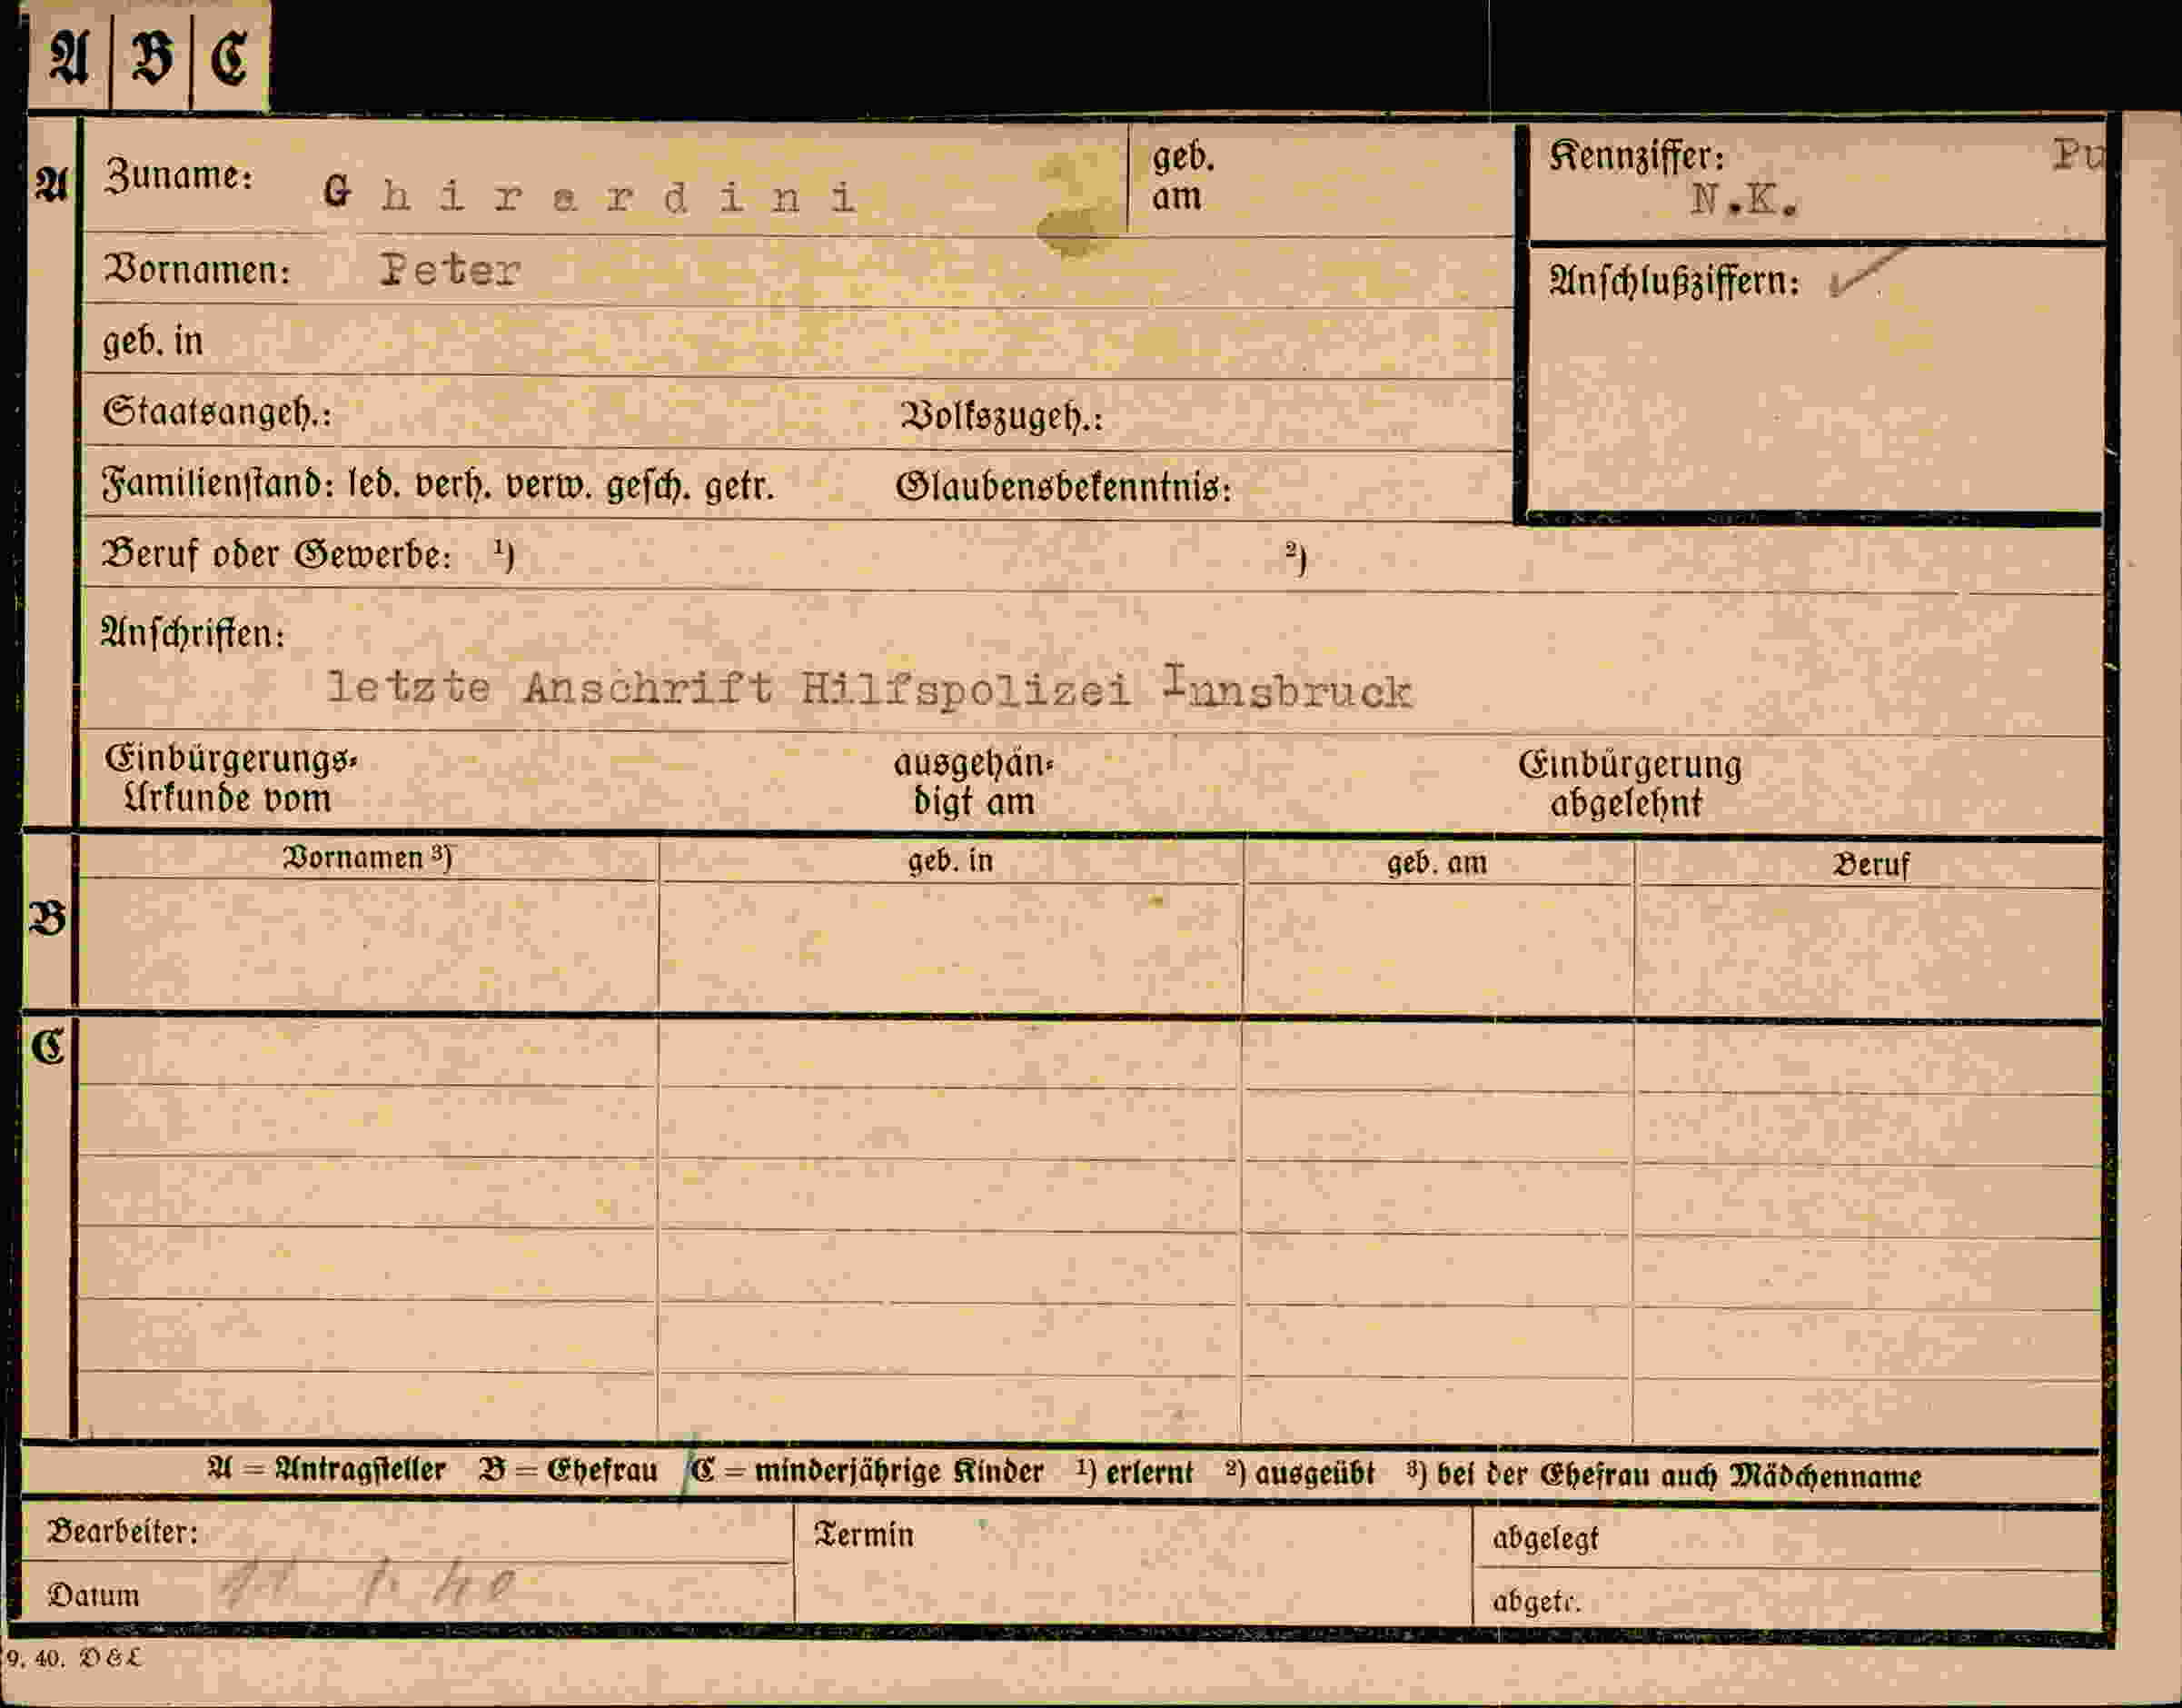 A B C
A
Zuname: Ghirardini
geb. am
Kennziffer: Pu
N.K.
Vornamen: Peter
Anschlußziffern:
geb. in
Staatsangeh.: Volkszugeh.:
Familienstand: led. verh. verw. gesch. getr. Glaubensbekenntnis:
Beruf oder Gewerbe: ¹) ²)
Anschriften:
letzte Anschrift Hilfspolizei Innsbruck
Einbürgerungs-
Urkunde vom
ausgehän-
digt am
Einbürgerung
abgelehnt
Vornamen ³) geb. in geb. am Beruf
B
C
A = Antragsteller B = Ehefrau C = minderjährige Kinder ¹) erlernt ²) ausgeübt ³) bei der Ehefrau auch Mädchenname
Bearbeiter: Termin abgelegt
Datum abgetr.
9. 40. D & L